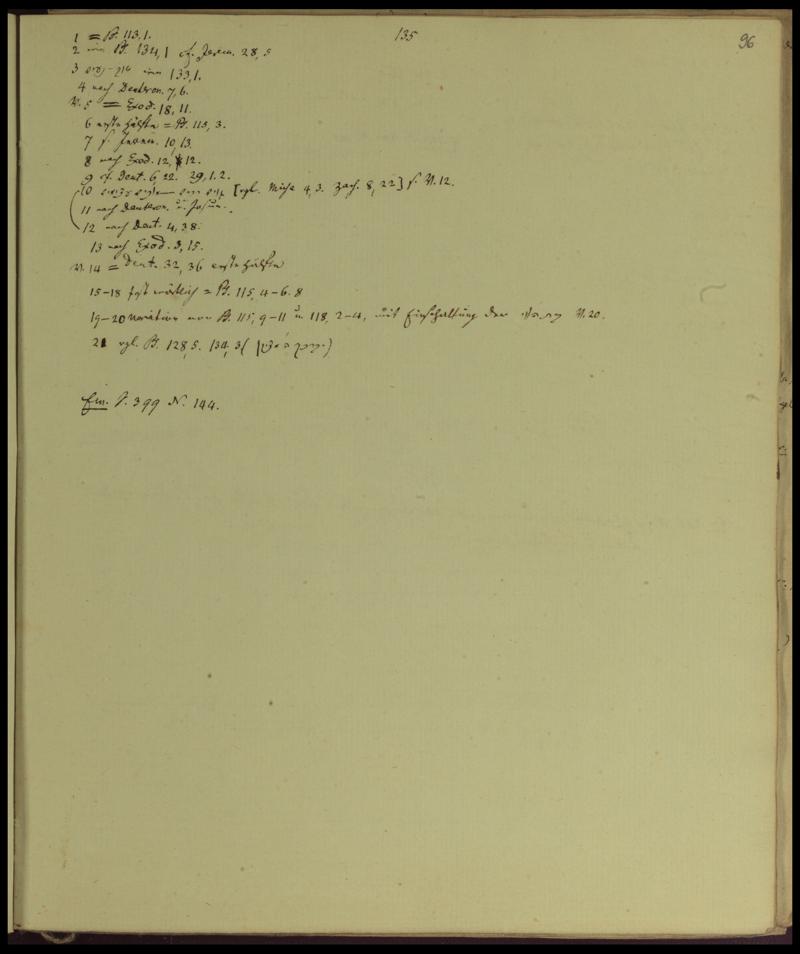 135
96
1 = Ps. 113,1.
2 wie Ps. 134,1 cf. Jerem. 28, 5
3 wie 133,1.
4 nach Deuteron. 7,6.
V. 5 = Exod. 18, 11.
6 erste Hälfte = Ps. 115, 3.
7 s. Jerem. 10, 13.
8 nach Exod. 12, 12.
9 cf. Deut. 6, 22. 29, 1. 2.
10 גוים רבים [vgl. Micha 4, 3. Zach. 8, 22] s. V. 12.
11 nach Deuteron. u. Josua.
12 nach Deut. 4, 38.
13 nach Exod. 3, 15.
V. 14 = Deut. 32, 36 erste Hälfte
15-18 fast wörtlich = Ps. 115, 4-6. 8
19-20 Variation von Ps. 115, 9-11 u. 118, 2-4, mit Einschaltung der V. 20.
21 vgl. Ps. 128, 5. 134, 3 (
S. 399 N. 144.